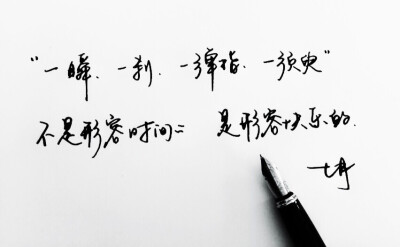 “一瞬、一刹、一弹指、一须臾”
不是形容时间 是形容快乐的.